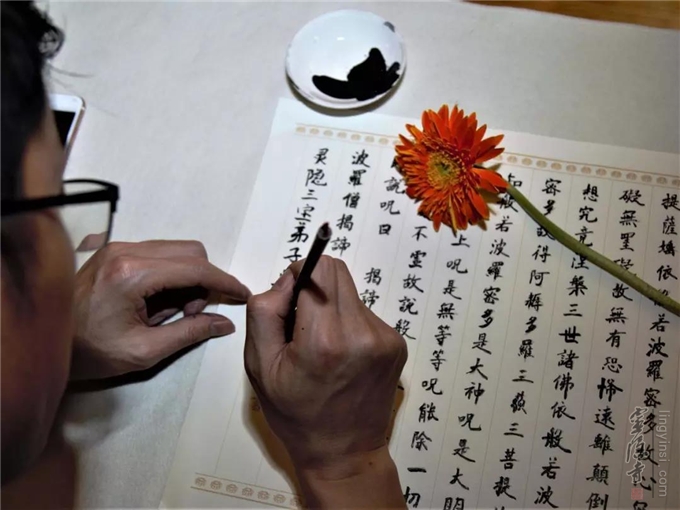 提薩埵依若波羅密多故心
礙無罣礙故無有恐怖遠離顛倒
想究竟涅槃三世諸佛依般若波
密多得阿耨多羅三藐三菩提
知般若波羅密多是大神呪是大明
上呪是無等等呪能除一切
不虛故說般
說呪曰 揭諦
波羅僧揭諦
灵隐三宝弟子
靈隱寺
lingyinsi.com